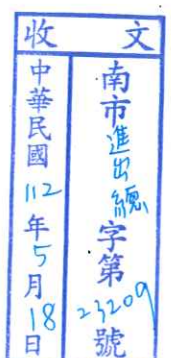 收文
南市進出總字第23209號
中華民國112年5月18日